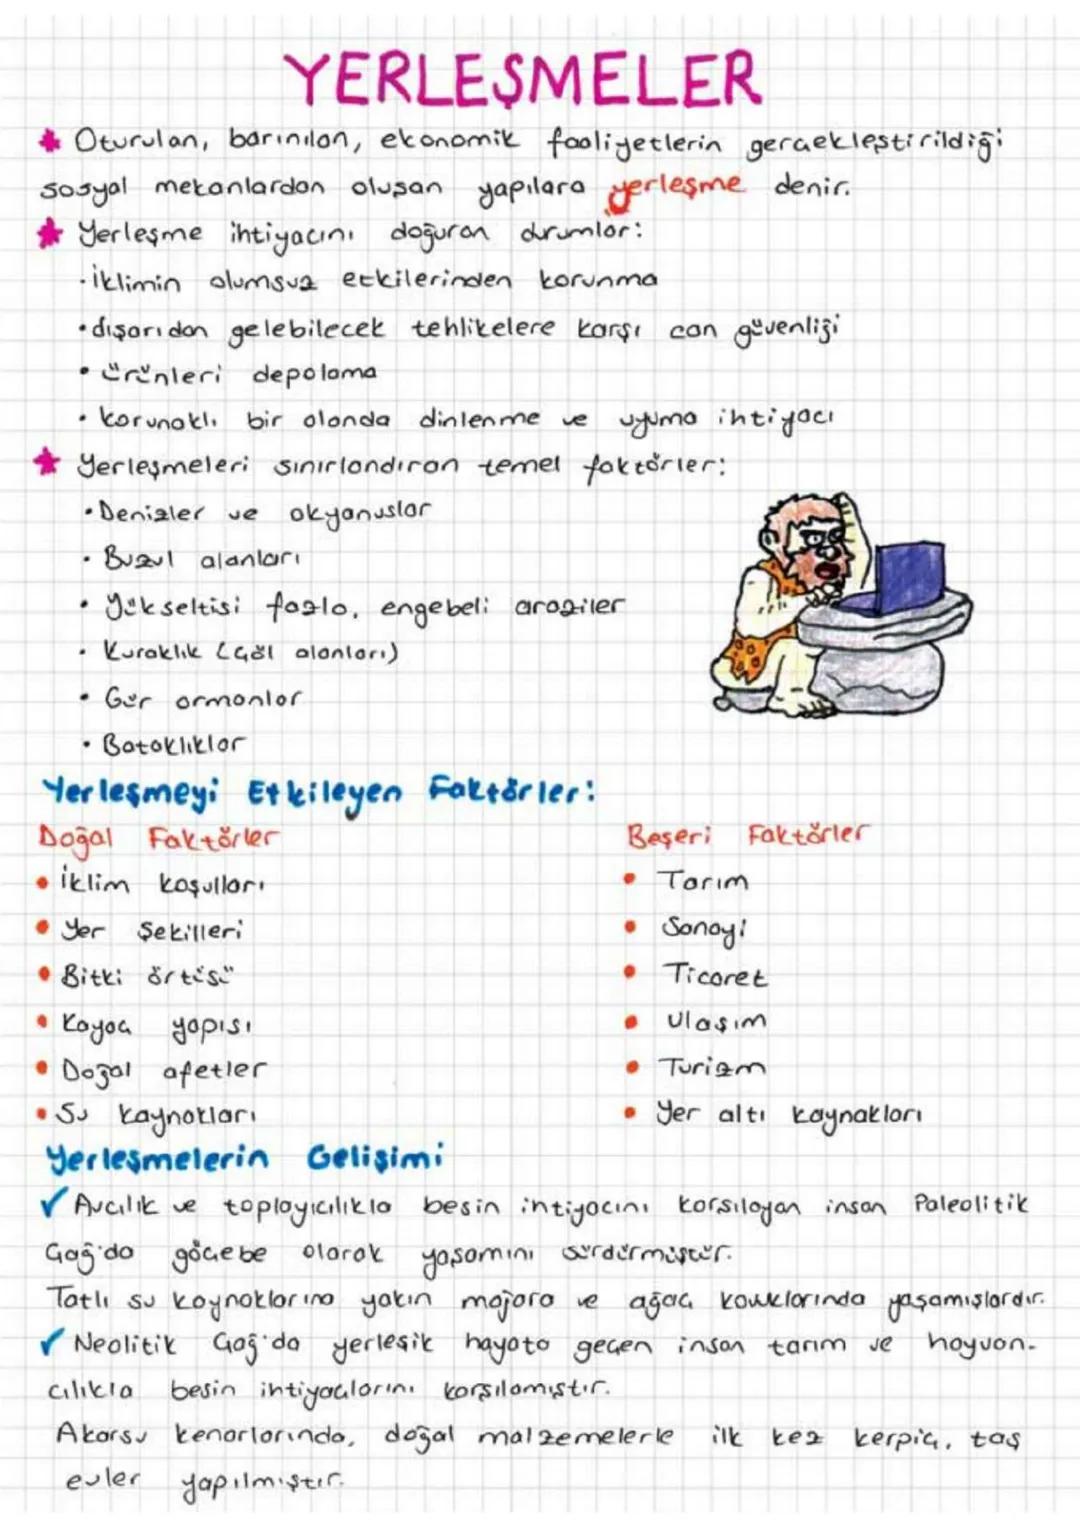 YERLEŞMELER
Oturulan, barınılan, ekonomik faaliyetlerin gerçekleştirildiği
sosyal mekanlardan oluşan yapılara yerleşme denir.
Yerleşme ihtiyacını doğuran durumlar:
• İklimin olumsuz etkilerinden korunma
• dışarıdan gelebilecek tehlikelere karşı can güvenliği
• ürünleri depolama
• korunaklı bir alanda dinlenme ve uyuma ihtiyacı
Yerleşmeleri sınırlandıran temel faktörler:
• Denizler ve okyanuslar
• Buzul alanları
• Yükseltisi fazla, engebeli araziler
• Kuraklık (Çöl alanları)
• Gür ormanlar
• Bataklıklar
Yerleşmeyi Etkileyen Faktörler:
Doğal Faktörler Beşeri Faktörler
• İklim koşulları • Tarım
• Yer Şekilleri • Sanayi
• Bitki örtüsü • Ticaret
• Kayaç yapısı • Ulaşım
• Doğal afetler • Turizm
• Su kaynakları • Yer altı kaynakları
Yerleşmelerin Gelişimi
✓ Avcılık ve toplayıcılıkla besin ihtiyacını karşılayan insan Paleolitik
Çağ'da göçebe olarak yaşamını sürdürmüştür.
Tatlı su kaynaklarına yakın mağara ve ağaç kovuklarında yaşamışlardır.
✓ Neolitik Çağ'da yerleşik hayata geçen insan tarım ve hayvan-
cılıkla besin ihtiyaçlarını karşılamıştır.
Akarsu kenarlarında, doğal malzemelerle ilk kez kerpiç, taş
evler yapılmıştır.